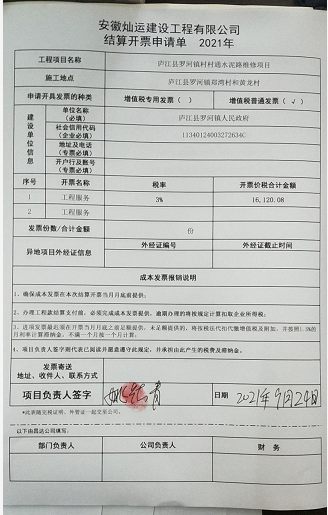 安徽灿运建设工程有限公司
结算开票申请单 2021年
工程项目名称 庐江县罗河镇村村通水泥路维修项目
施工地点 庐江县罗河镇郑湾村和黄龙村
申请开具发票的种类 增值税专用发票（ ） 增值税普通发票（ √ ）
建设单位信息
单位名称（必填） 庐江县罗河镇人民政府
社会信用代码（企业必填） 11340124003272634C
地址及电话（专票必填）
开户行及账号（专票必填）
序号 开票名称 税率 开票价税合计金额
1 工程服务 3% 16,120.08
2 工程服务
发票份数/合计金额 份
异地项目外经证信息 外经证编号 外经证截止时间
成本发票报销说明
1、确保成本发票在本次结算开票当月月底前提供；
2、办理工程款结算支付前，必须完成成本发票提供，逾期办理的将按规定计算扣取企业所得税；
3、进项发票最迟须在开票当月月底之前足额提供，未足额提供的，将按税法代扣代缴增值税及附加，并按照1.5%的月利率计算滞纳金，不满一个月按一个月计算。
4、项目负责人签字则代表已阅读并愿意遵守此规定，并承担由此产生的税费及滞纳金。
发票寄送
地址、收件人、联系方式
项目负责人签字 日期 2021年9月24日
*此表随完税证明、外管证一起交至公司。
以下由昌达公司填写：
部门负责人 公司负责人 财 务